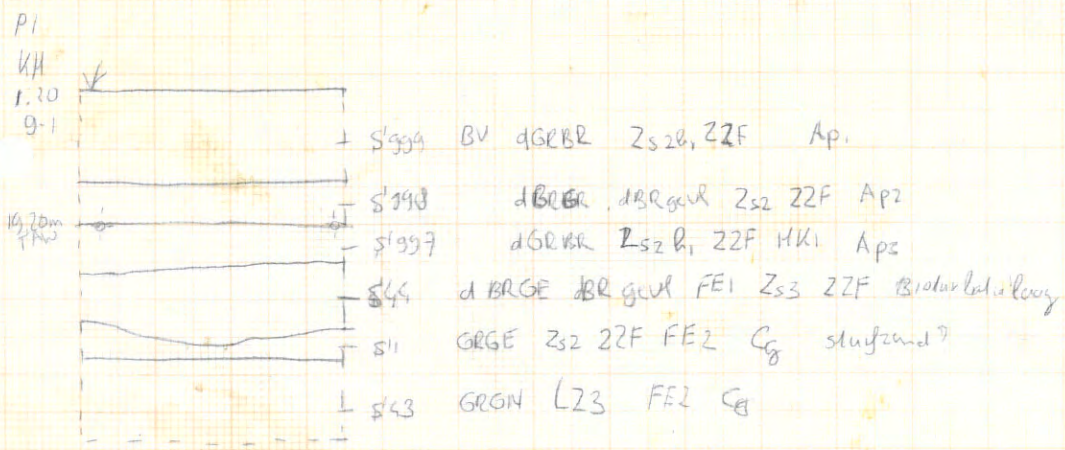 P1
KH
1.20
9-1
S999 BV dGRBR Zs2h1 ZZF Ap1
S998 dBRGR dBRgevl Zs2 ZZF Ap2
19,20m TAW
S997 dGRBR Zs2h1 ZZF HK1 Ap3
S44 dBRGE dBRgevl FE1 Zs3 ZZF Bioturbatielaag
S11 GRGE Zs2 ZZF FE2 Cg stuifzand?
S43 GRGN LZ3 FE2 Cg